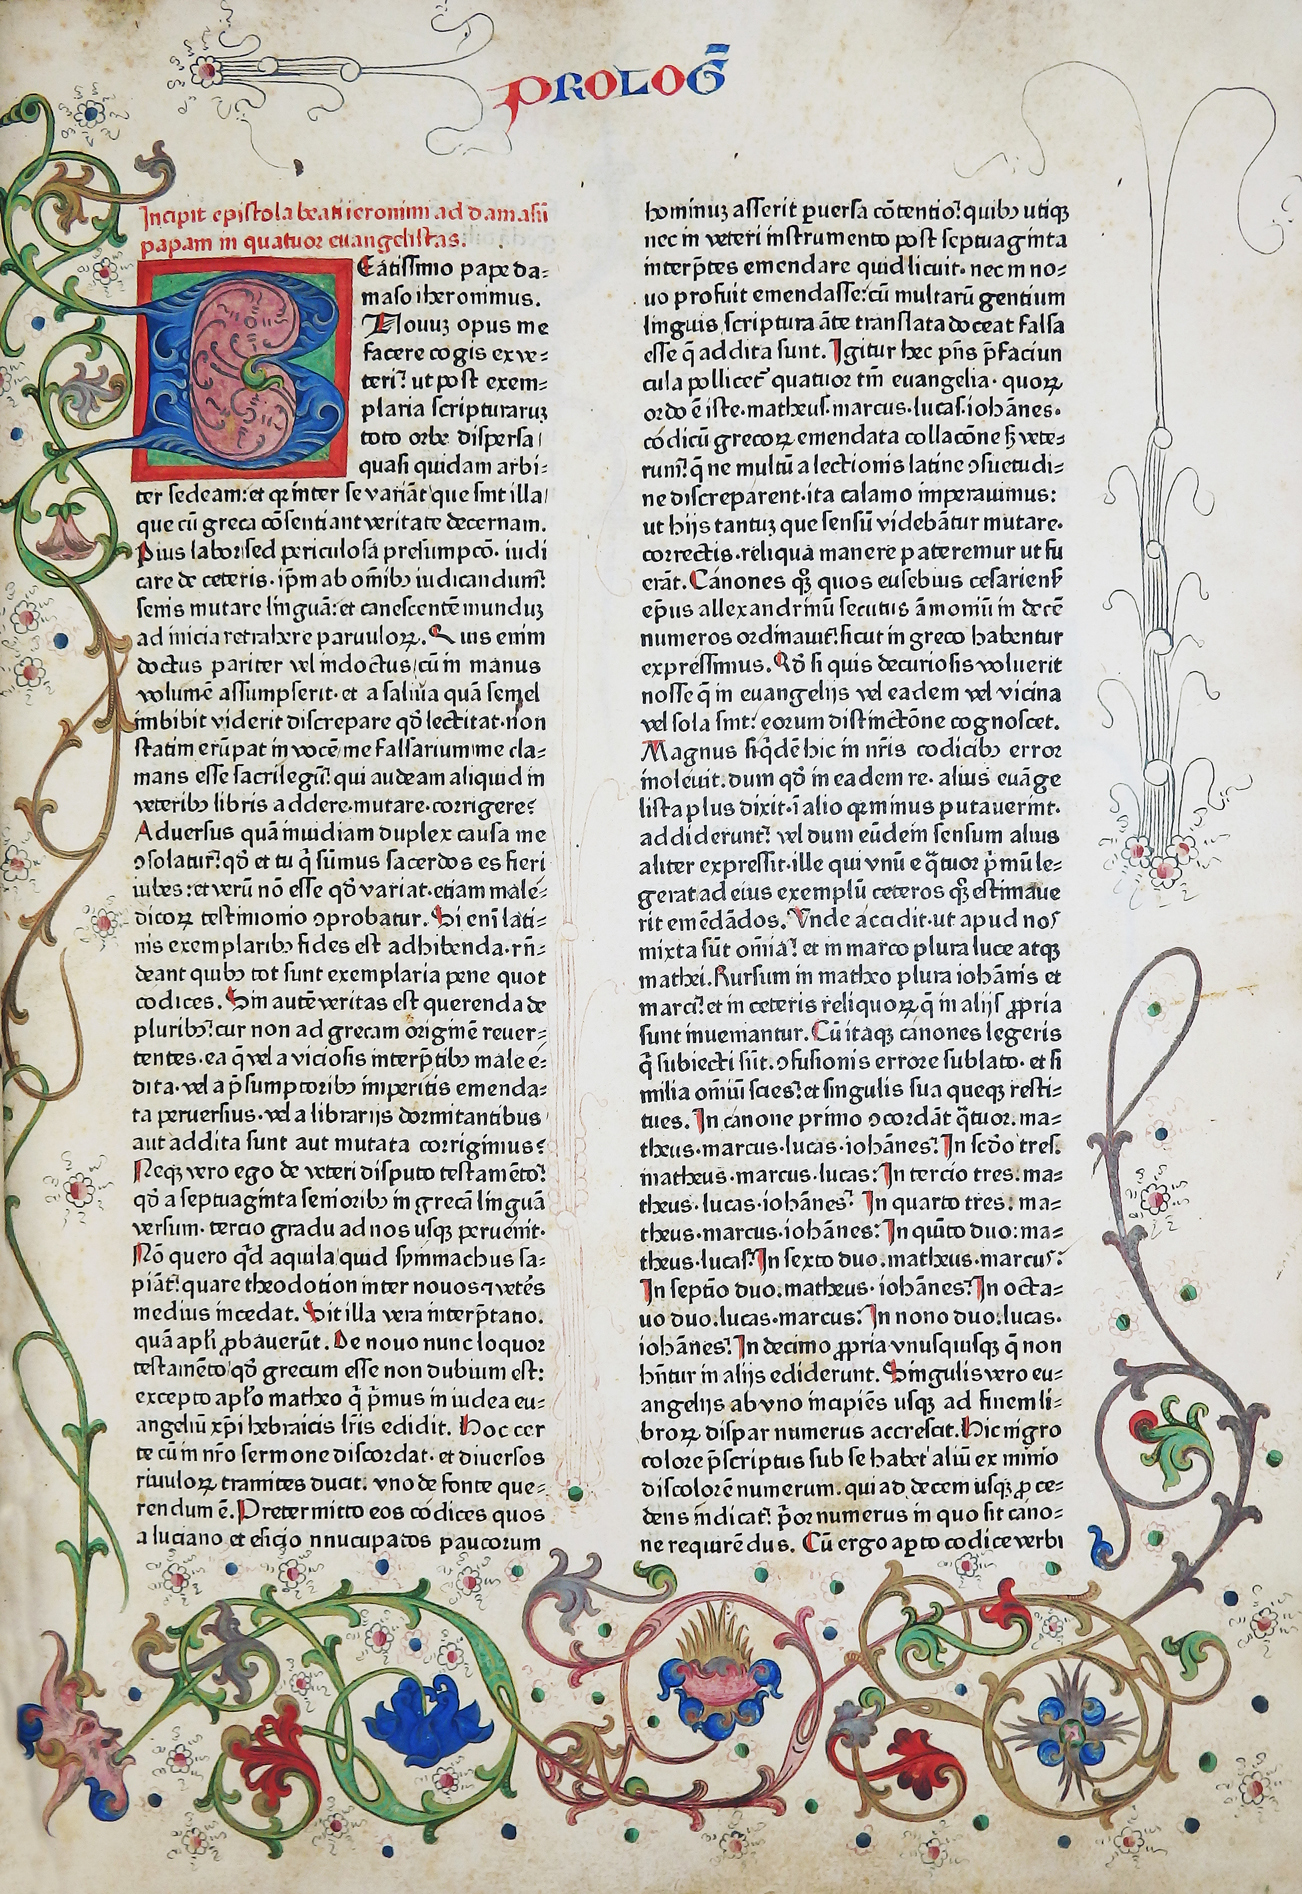 PROLOG̅
Incipit epistola beati ieronimi ad damasū
papam in quatuor euangelistas.
Eatissimo pape da-
maso iheronimus.
Nouuz opus me
facere cogis ex ve-
teri? ut post exem-
plaria scripturaruz
toto orbe dispersa
quasi quidam arbi-
ter sedeam: et qꝛ inter se variāt que sint illa
que cū greca cōsentiant veritate decernam.
Pius labor sed periculosa presumpcō. iudi
care de ceteris. ip̄m ab omībꝫ iudicandum?
senis mutare linguā: et canescentē munduz
ad inicia retrahere paruuloꝝ. Quis enim
doctus pariter vel indoctus cū in manus
volumē assumpserit. et a saliua quā semel
imbibit viderit discrepare qd̄ lectitat. non
statim erūpat in vocē me falsarium me cla-
mans esse sacrilegū? qui audeam aliquid in
veteribꝫ libris addere. mutare. corrigere?
Aduersus quā inuidiam duplex causa me
ꝯsolatur? qd̄ et tu q̄ sūmus sacerdos es fieri
iubes: et verū nō esse qd̄ variat. etiam male-
dicoꝝ testimonio ꝯprobatur. Si enī lati-
nis exemplaribꝫ fides est adhibenda. rn̄-
deant quibꝫ tot sunt exemplaria pene quot
codices. Sin autē veritas est querenda de
pluribꝫ? cur non ad grecam originē reuer-
tentes. ea q̄ vel a viciosis interp̄tibꝫ male e-
dita. vel a p̄sumptoribꝫ imperitis emenda-
ta peruersius. vel a librarijs dormitantibus
aut addita sunt aut mutata corrigimus?
Neqꝫ vero ego de veteri disputo testamēto?
qd̄ a septuaginta senioribꝫ in grecā linguā
versum. tercio gradu ad nos usqꝫ peruenit.
Nō quero qd̄ aquila quid symmachus sa-
piāt? quare theodotion inter nouos ⁊ vetēs
medius incedat. Sit illa vera interp̄tatio.
quā apl̄i ꝓbauerūt. De nouo nunc loquor
testamēto qd̄ grecum esse non dubium est:
excepto apl̄o matheo q̄ p̄mus in iudea eu-
angeliū xp̄i hebraicis lr̄is edidit. Hoc cer
te cū in nr̄o sermone discordat. et diuersos
riuuloꝝ tramites ducit. vno de fonte que-
rendum ē. Pretermitto eos códices quos
a luciano et esicio nnucupatos paucorum
hominuz asserit ꝑuersa cōtentio? quibꝫ utiqꝫ
nec in veteri instrumento post septuaginta
interp̄tes emendare quid licuit. nec in no-
uo profuit emendasse: cū multarū gentium
linguis scriptura āte translata doceat falsa
esse q̄ addita sunt. Igitur hec pn̄s p̄faciun
cula pollicet᷑ quatuor tm̄ euangelia. quoꝝ
ordo ē iste. matheus. marcus. lucas. iohānes.
códicū grecoꝝ emendata collacōne sꝫ vete-
rum? q̄ ne multū a lectionis latine ꝯsuetudi-
ne discreparent. ita calamo imperauimus:
ut hijs tantuz que sensū videbātur mutare.
correctis. reliqua manere pateremur ut fu
erāt. Cánones qꝫ quos eusebius cesariens̄
ep̄us allexandrinū secutus āmoniū in decē
numeros ordinauit? sicut in greco habentur
expressimus. Qd̄ si quis de curiosis voluerit
nosse q̄ in euangelijs vel eadem vel vicina
vel sola sint: eorum distinctōne cognoscet.
Magnus siq̄dē hic in nr̄is codicibꝫ error
inoleuit. dum qd̄ in eadem re. alius euāge
lista plus dixit. ī alio qꝛ minus putauerint.
addiderunt? vel dum eūdem sensum alius
aliter expressit. ille qui vnū e q̄tuor p̄mū le-
gerat ad eius exemplū ceteros qꝫ estimaue
rit emēdādos. Vnde accidit. ut apud nos
mixta sūt omīa? et in marco plura luce atqꝫ
mathei. Rursum in matheo plura iohānis et
marci? et in ceteris reliquoꝝ q̄ in alijs ꝓpria
sunt inueniantur. Cū itaqꝫ cánones legeris
q̄ subiecti sūt. ꝯfusionis errore sublato. et si
milia omīū scies? et singulis sua queqꝫ resti-
tues. In cánone primo ꝯcordāt q̄tuor. ma-
theus. marcus. lucas. iohānes? In scd̄o tres.
matheus. marcus. lucas? In tercio tres. ma-
theus. lucas. iohānes? In quarto tres. ma-
theus. marcus. iohānes? In quīto duo: ma-
theus. lucas? In sexto duo. matheus. marcus?
In septīo duo. matheus. iohānes? In octa-
uo duo. lucas. marcus? In nono duo. lucas.
iohānes? In decimo ꝓpria vnusquisqꝫ q̄ non
hn̄tur in alijs ediderunt. Singulis vero eu-
angelijs ab vno incipiēs usqꝫ ad finem li-
broꝝ dispar numerus accrescit. Hic nigro
colore p̄scriptus sub se habet aliū ex minio
discolorē numerum. qui ad decem usqꝫ ꝓce-
dens indicat? p̄or numerus in quo sit cáno-
ne requirēdus. Cū ergo aꝑto codice verbi